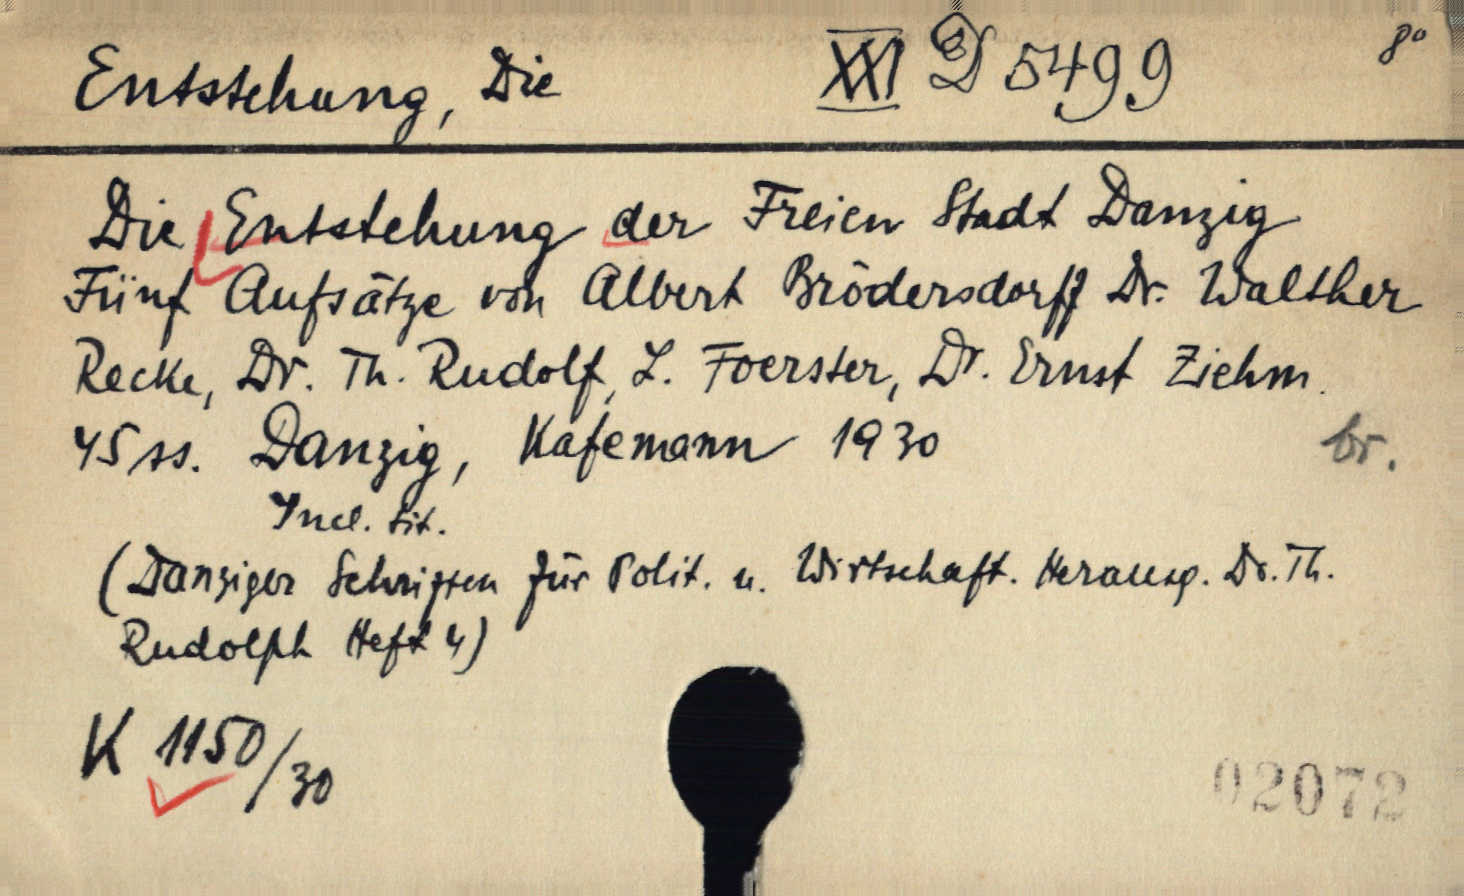 Entstehung, Die XXI D 5499 8°
Die Entstehung der Freien Stadt Danzig
Fünf Aufsätze von Albert Brödersdorff Dr. Walther
Recke, Dr. Th. Rudolf, L. Foerster, Dr. Ernst Ziehm.
45 ss. Danzig, Kafemann 1930 br.
Incl. tit.
(Danziger Schriften für Polit. u. Wirtschaft. Herausg. Dr. Th.
Rudolph Heft 4)
K 1150/30
02072